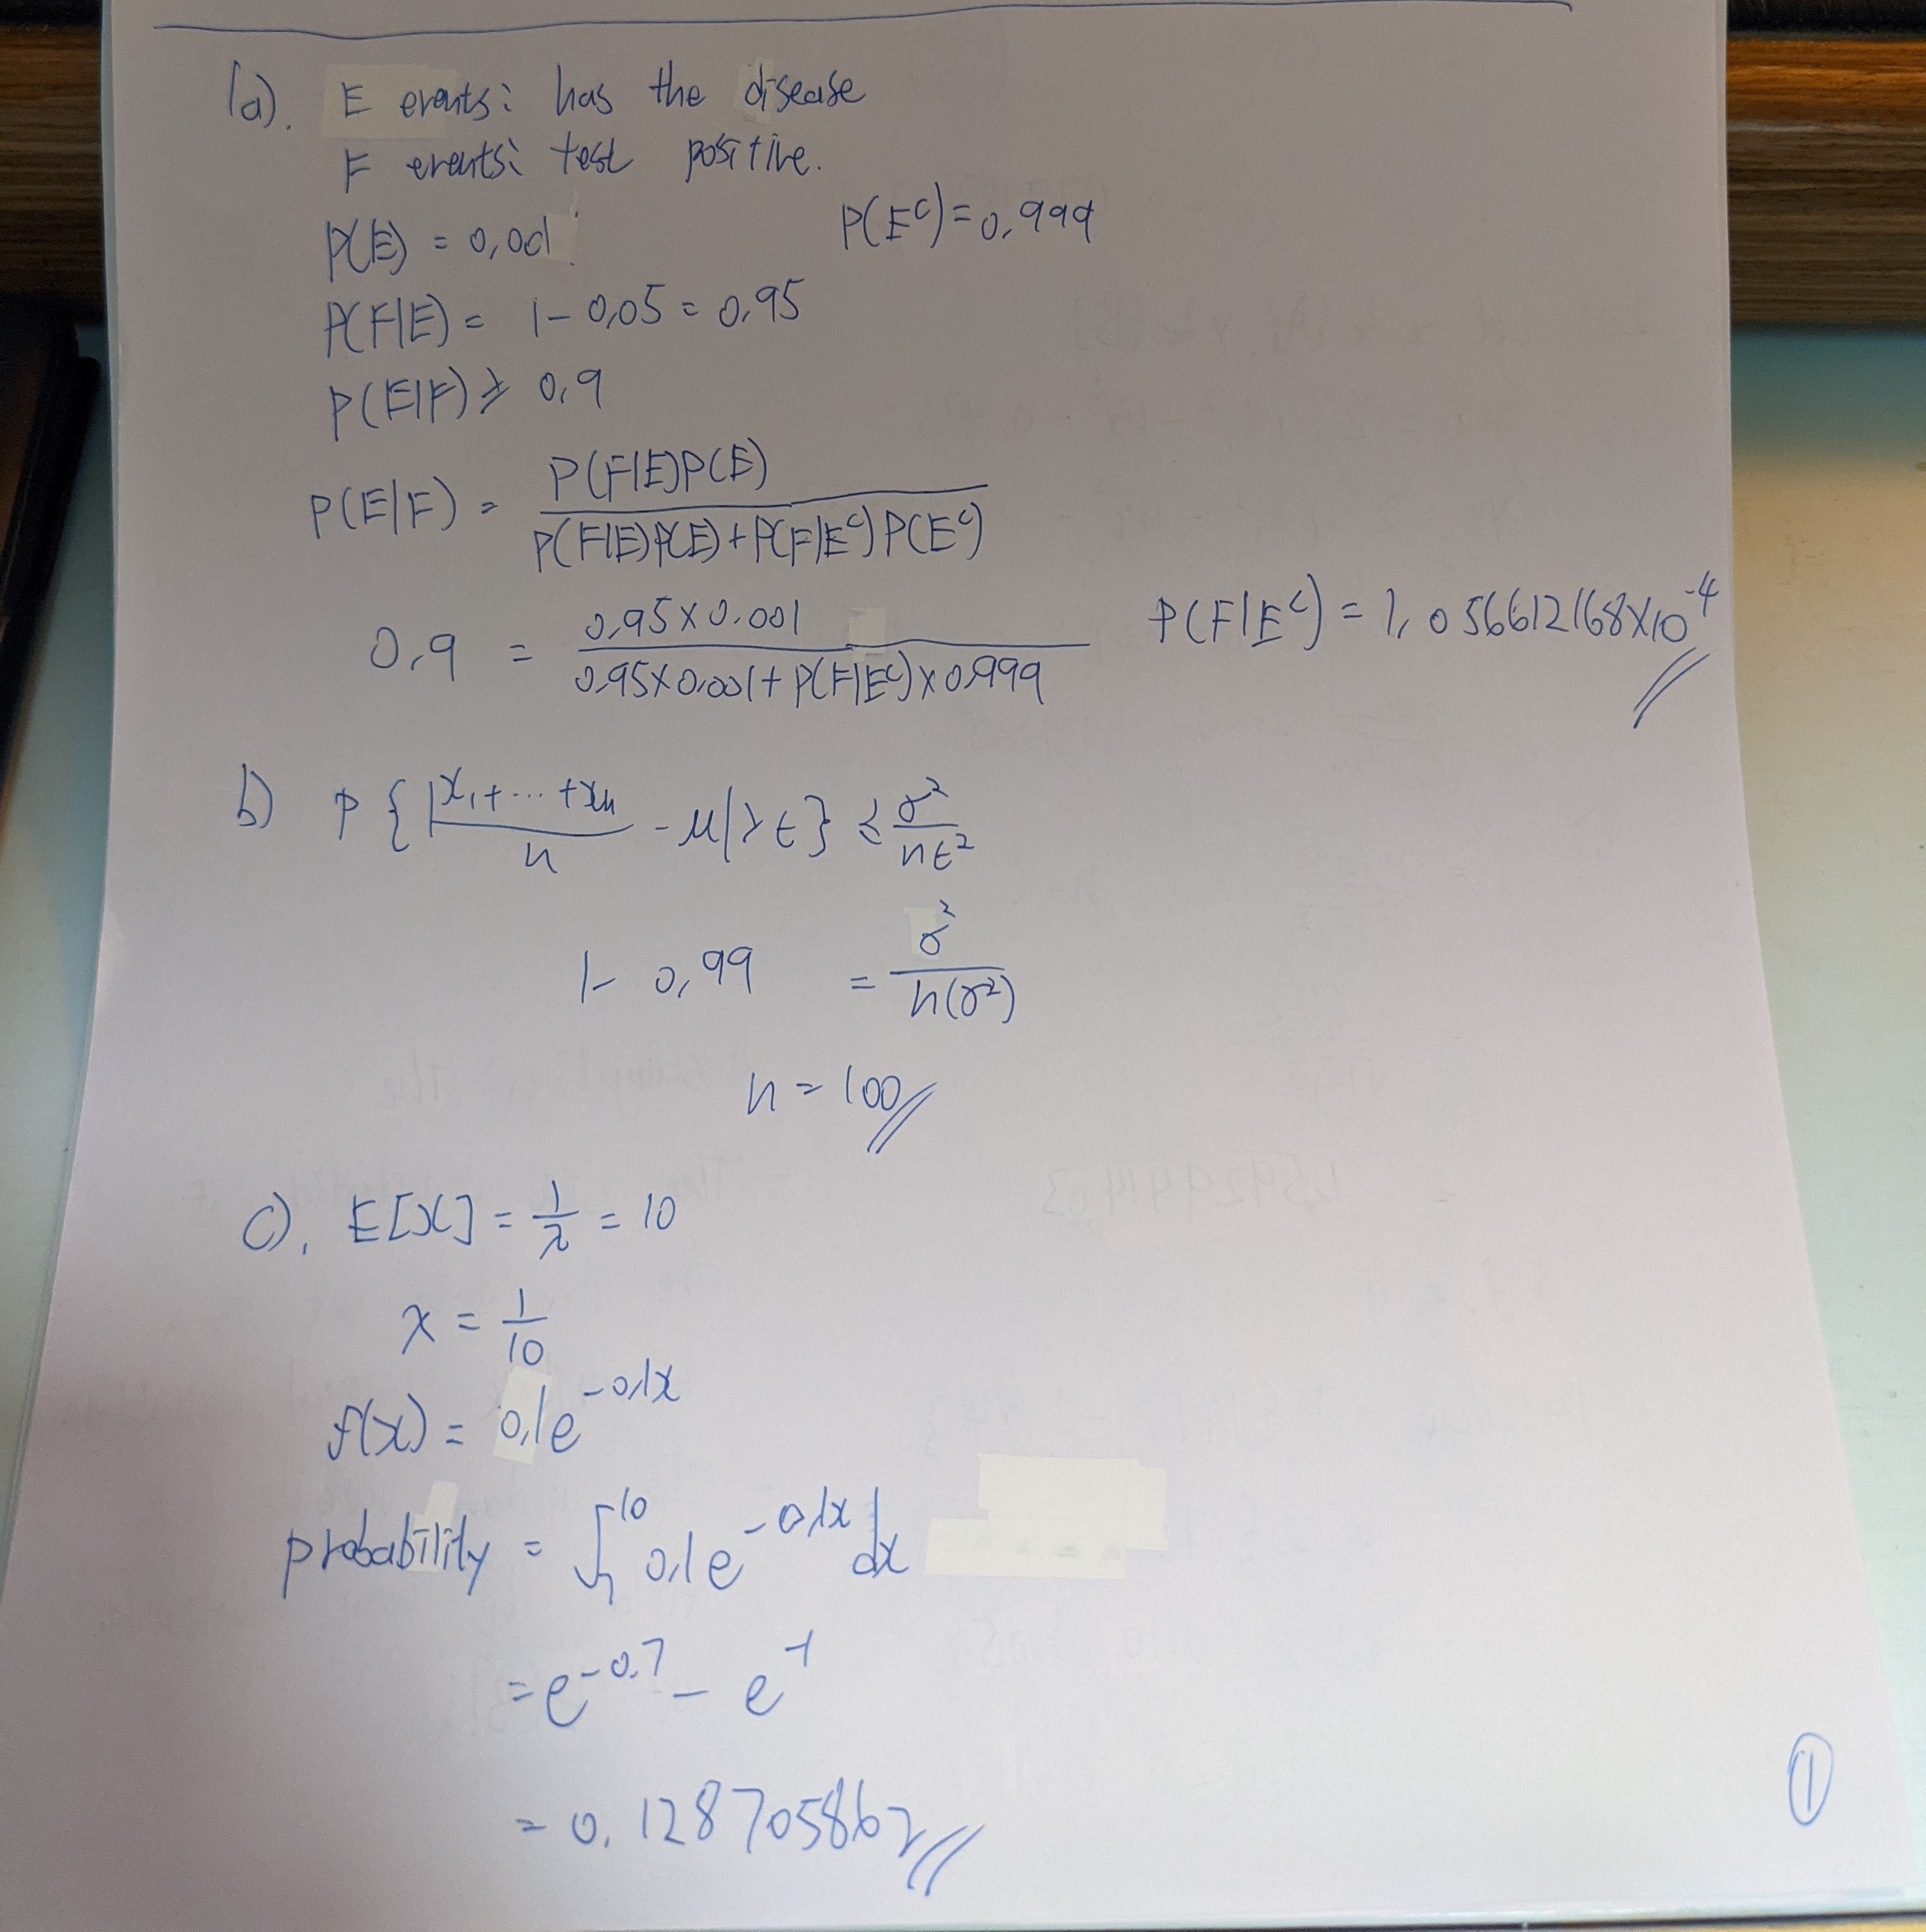 (a). E events: has the disease
F events: test positive.
P(E) = 0.001 P(E^c) = 0.999
P(F|E) = 1 - 0.05 = 0.95
P(E|F) ≥ 0.9
P(E|F) = P(F|E)P(E) / P(F|E)P(E) + P(F|E^c)P(E^c)
0.9 = 0.95 × 0.001 / 0.95 × 0.001 + P(F|E^c) × 0.999 P(F|E^c) = 1.056612168 × 10^-4
b) P{ | x₁ + ... + xₙ / n - μ | > ε } ≤ σ² / nε²
1 - 0.99 = σ² / n(σ²)
n = 100
c). E[X] = 1/λ = 10
λ = 1/10
f(x) = 0.1e^-0.1x
probability = ∫₇^10 0.1e^-0.1x dx
= e^-0.7 - e^-1
= 0.128705862
1